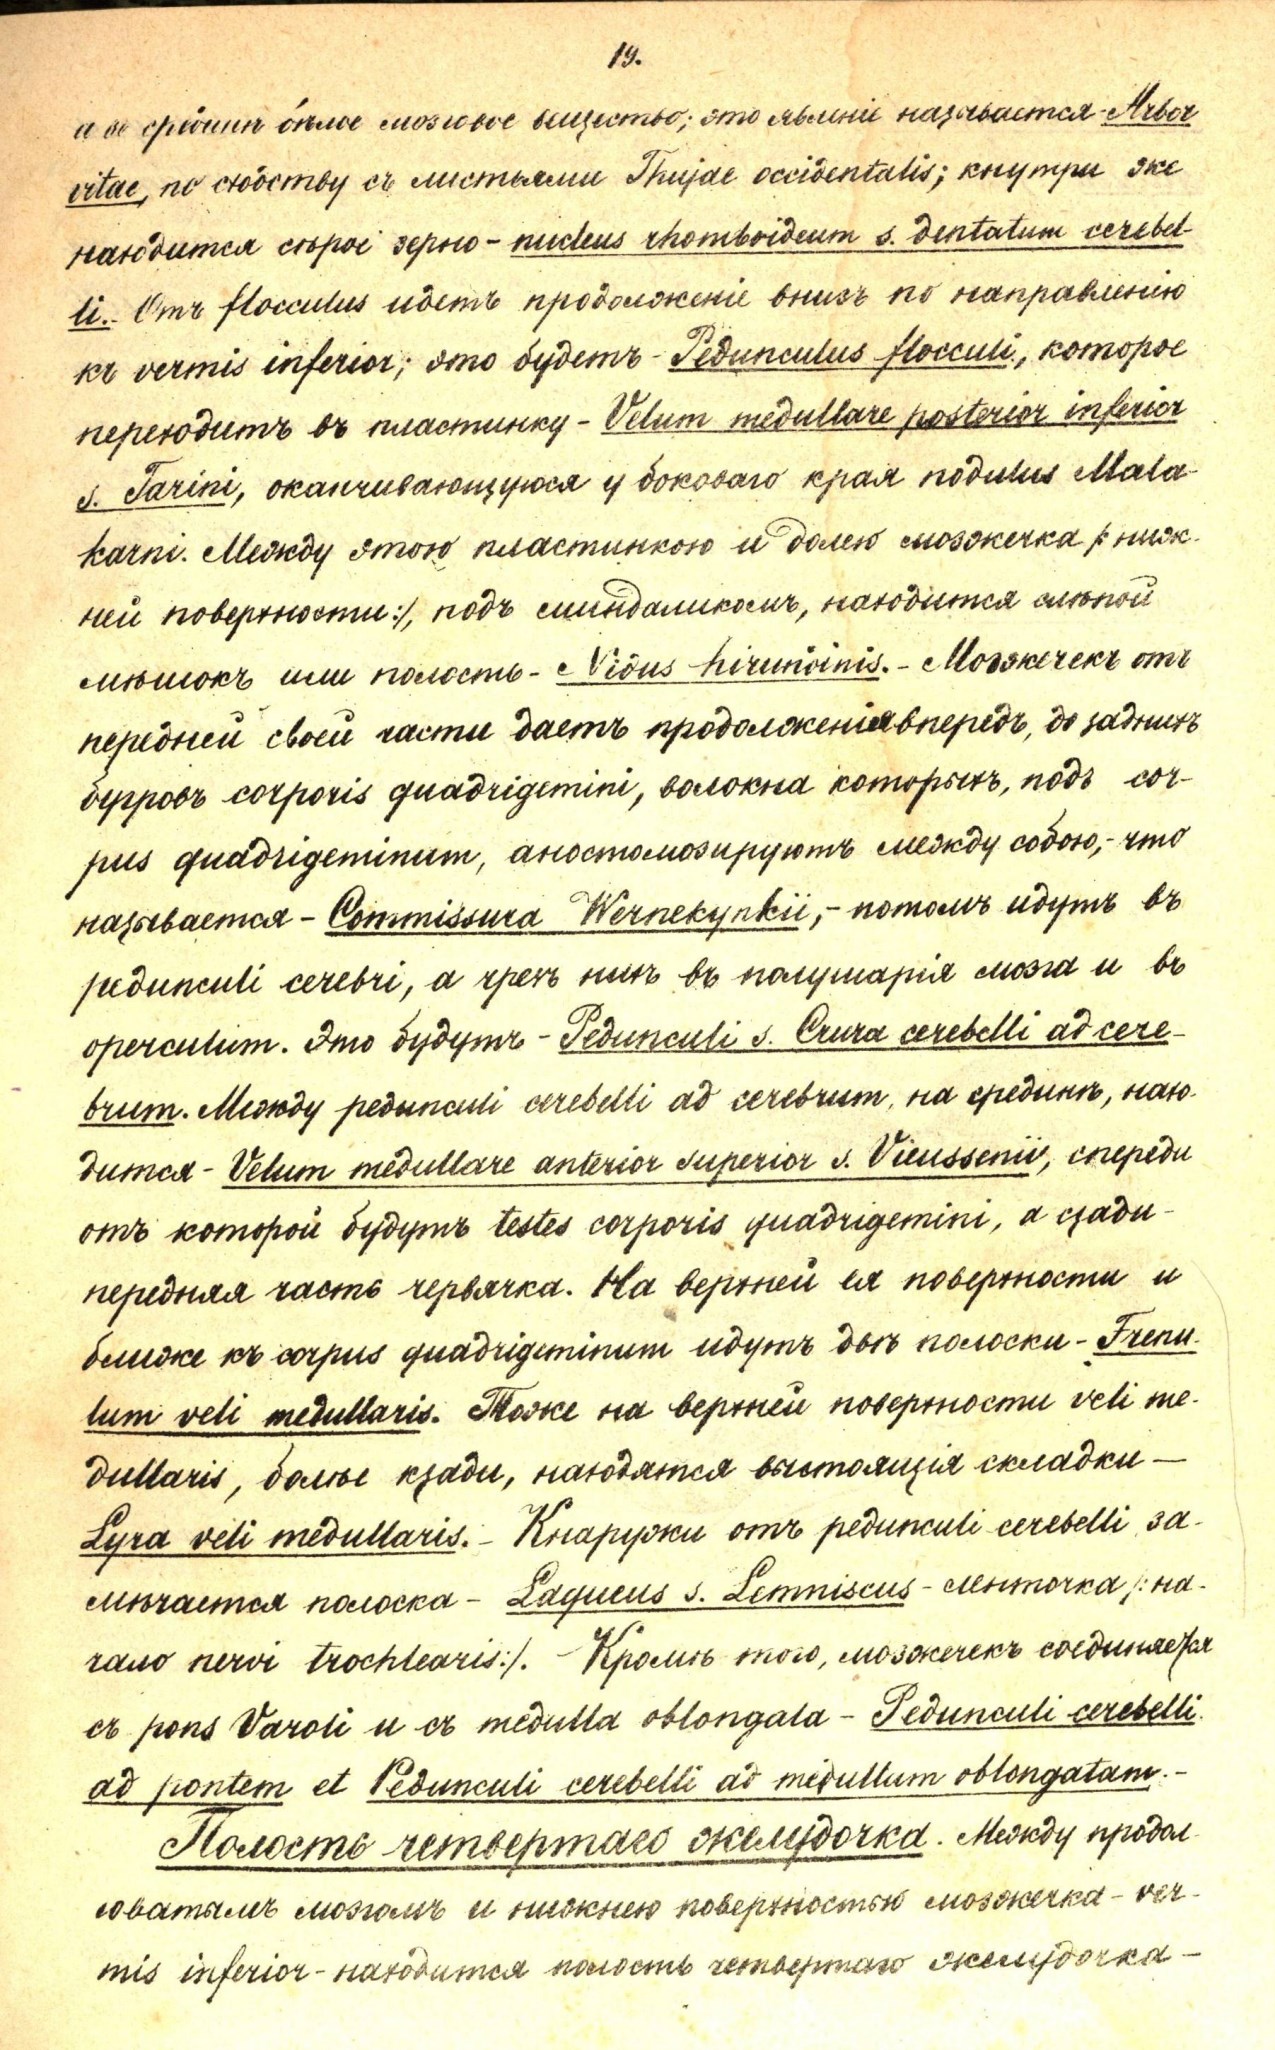 19.
а въ срединѣ бѣлое мозговое вещество; это явленіе называется - Arbor
vitae, по сходству съ листьями Thujae occidentalis; кнутри же
находится сѣрое зерно - nucleus rhomboideum s. dentatum cerebel-
li. - Отъ flocculus идетъ продолженіе внизъ по направленію
къ vermis inferior; это будетъ - Pedunculus flocculi, которое
переходитъ въ пластинку - Velum medullare posterior inferior
s. Tarini, оканчивающуюся у боковаго края nodulus Mala-
karni. Между этою пластинкою и долею мозжечка /: ниж-
ней поверхности:/, подъ миндаликомъ, находится слѣпой
мѣшокъ или полость - Nidus hirundinis. - Мозжечекъ отъ
передней своей части даетъ продолженія впередъ, до заднихъ
бугровъ corporis quadrigemini, волокна которыхъ, подъ cor-
pus quadrigeminum, аностомозируютъ между собою, - что
называется - Commissura Wernekynkii, - потомъ идутъ въ
pedunculi cerebri, а чрезъ нихъ въ полушарія мозга и въ
operculum. Это будутъ - Pedunculi s. Crura cerebelli ad cere-
brum. Между pedunculi cerebelli ad cerebrum, на срединѣ, нахо-
дится - Velum medullare anterior superior s. Vieussenii, спереди
отъ которой будутъ testes corporis quadrigemini, а сзади -
передняя часть червячка. На верхней ея поверхности и
ближе къ corpus quadrigeminum идутъ двѣ полоски - Frenu-
lum veli medullaris. Тоже на верхней поверхности veli me-
dullaris, болѣе кзади, находятся выстоящія складки —
Lyra veli medullaris. - Кнаружи отъ pedunculi cerebelli за-
мѣчается полоска - Laqueus s. Lemniscus - ленточка /: на-
чало nervi trochlearis:/. - Кромѣ того, мозжечекъ соединяется
съ pons Varoli и съ medulla oblongata - Pedunculi cerebelli
ad pontem et Pedunculi cerebelli ad medullum oblongatam. -
Полость четвертаго желудочка. Между продол-
говатымъ мозгомъ и нижнею поверхностью мозжечка - ver-
mis inferior - находится полость четвертаго желудочка -